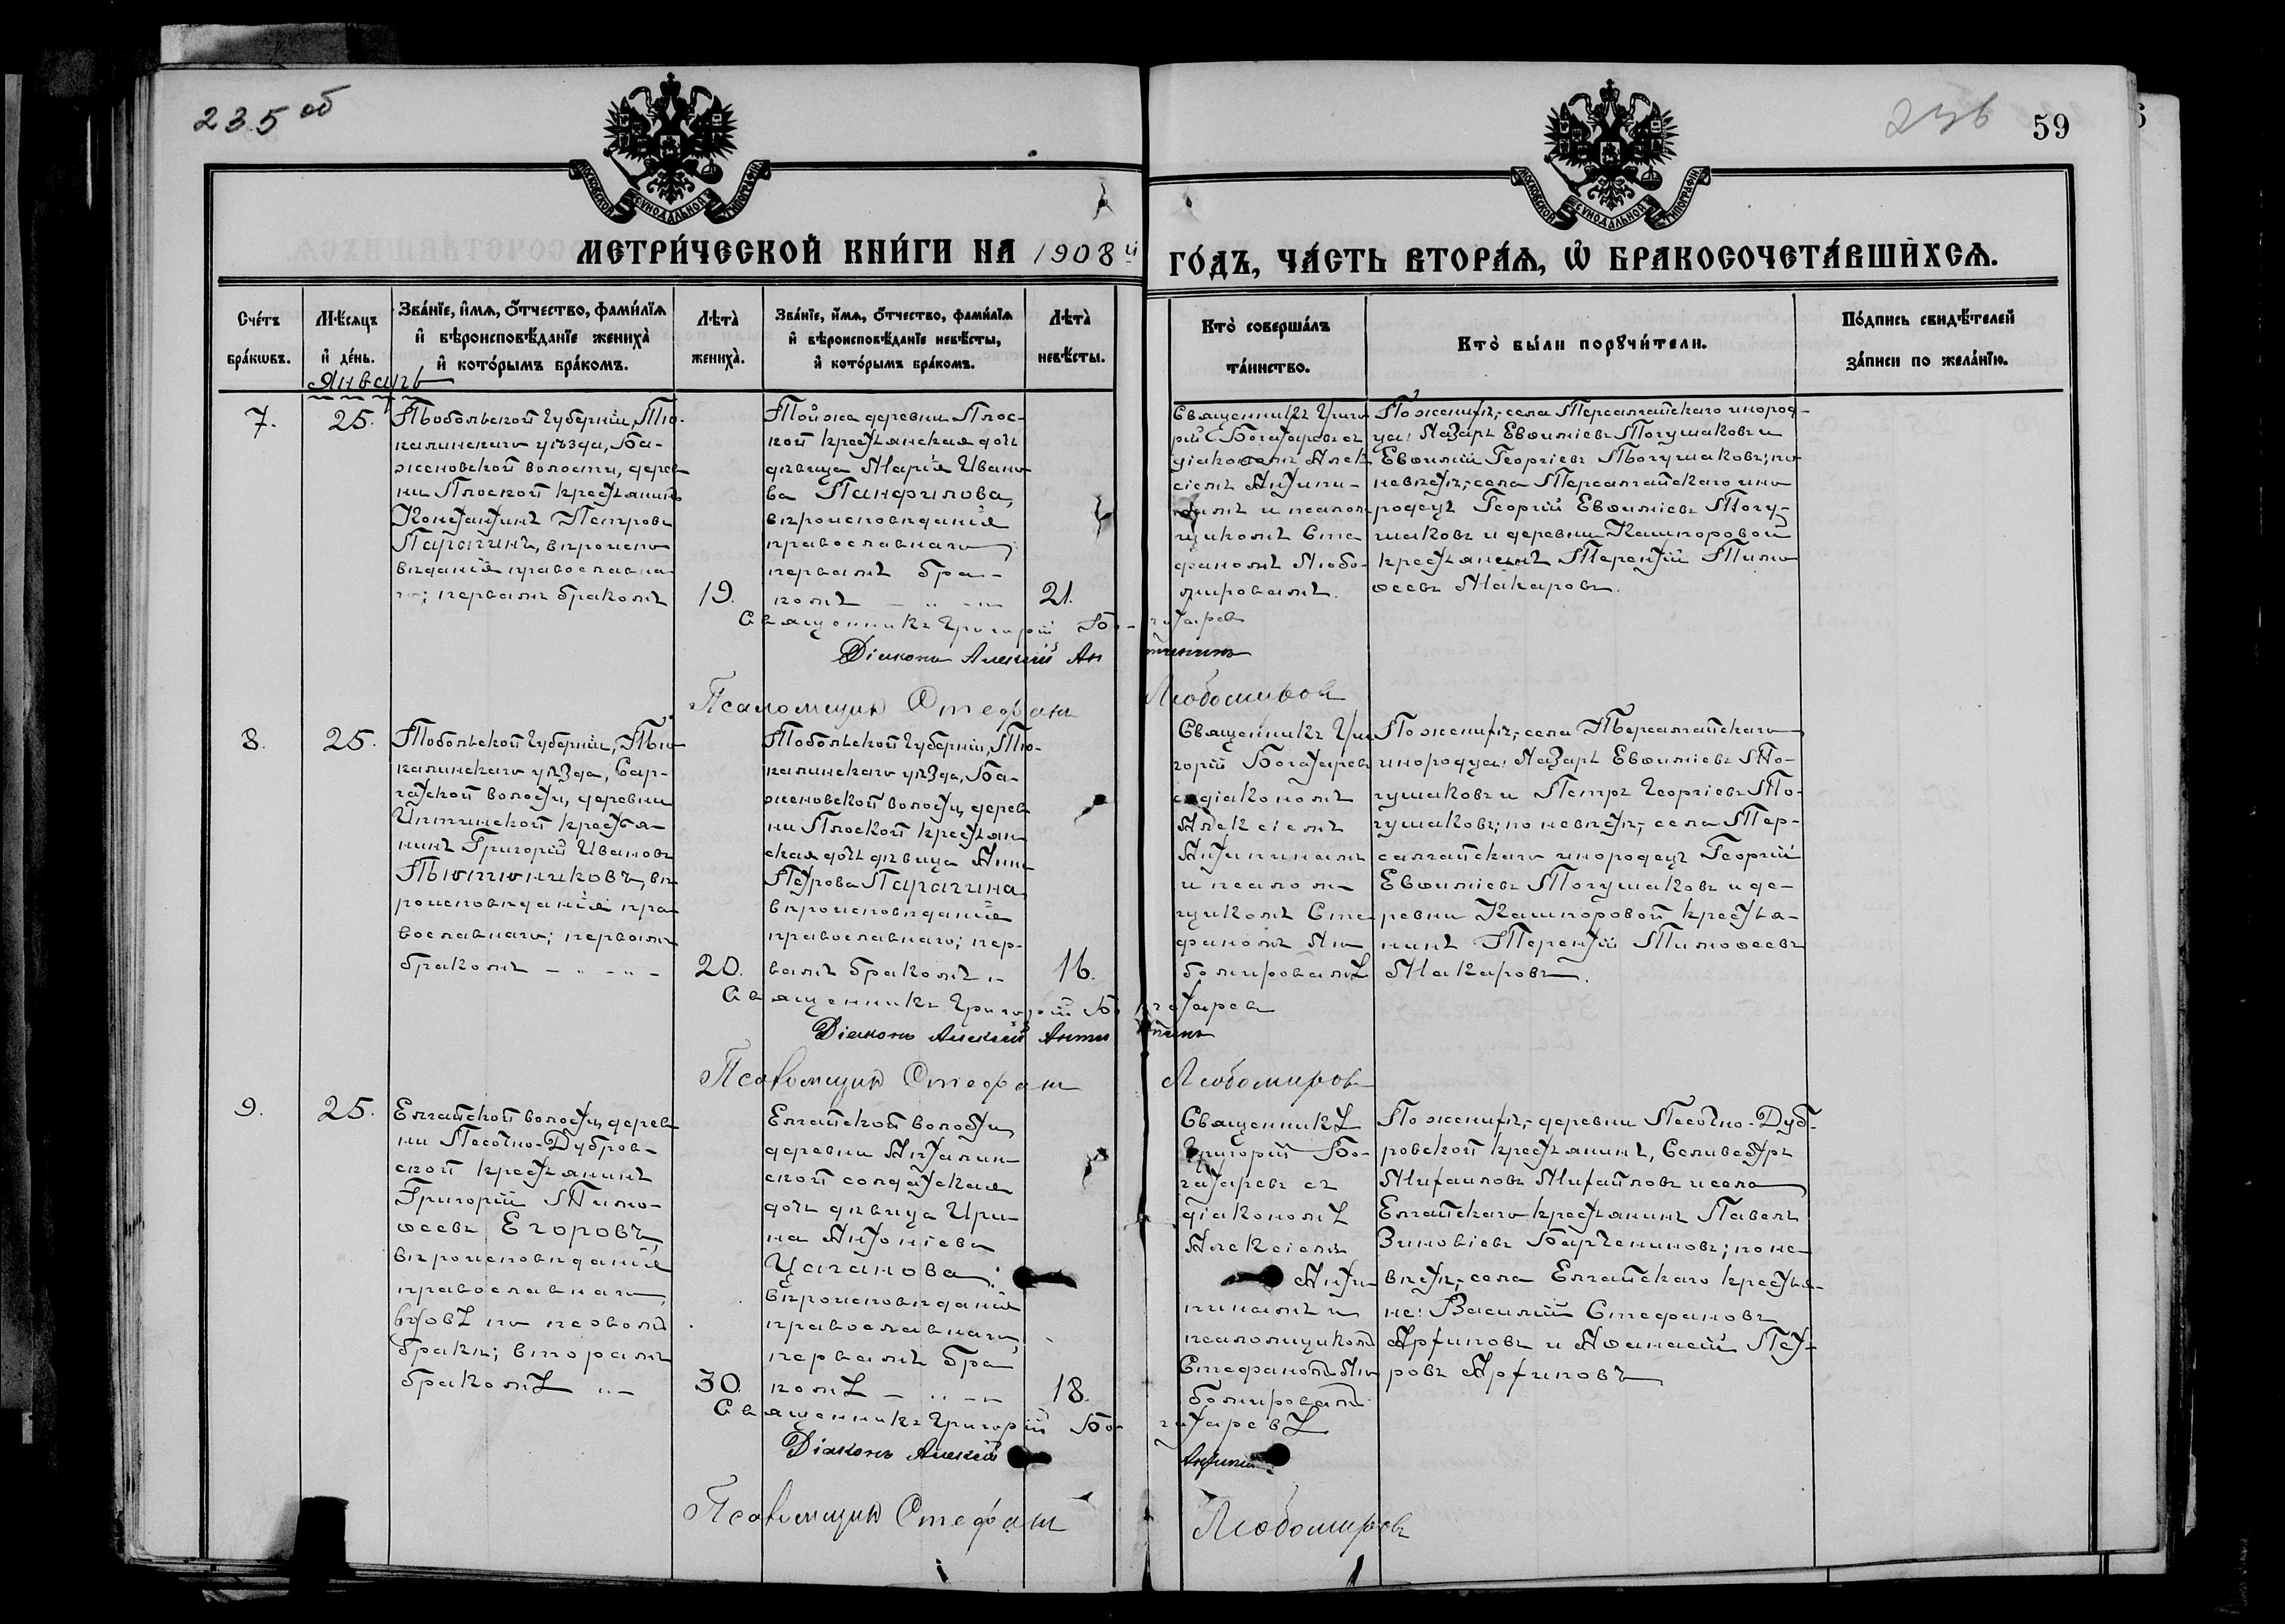 235 об
236
59
МОСКОВСКОЙ СѴНОДАЛЬНОЙ ТИПОГРАФІИ
МОСКОВСКОЙ СѴНОДАЛЬНОЙ ТИПОГРАФІИ
МЕТРИ́ЧЕСКОЙ КНИ́ГИ НА 1908й
ГО́ДЪ, ЧА́СТЬ ВТОРА́Ѧ, Ѽ БРАКОСОЧЕТА́ВШИХСѦ.
Сче́тъ
бра́кωвъ.
Мѣ́сяцъ
и҆ де́нь.
Зва́нїе, и҆́мѧ, ѻ҆́тчество, фами́лїѧ
и҆ вѣроисповѣ́данїе жениха̀
и҆ кото́рымъ бра́комъ.
Лѣта̀
жениха̀.
Зва́нїе, и҆́мѧ, ѻ҆́тчество, фами́лїѧ
и҆ вѣроисповѣ́данїе невѣ́сты,
и҆ кото́рымъ бра́комъ.
Лѣта̀
невѣ́сты.
Кто̀ соверша́лъ
та́инство.
Кто̀ бы́ли порꙋчи́тели.
По́дпись свидѣ́телей
за́писи по жела́нїю.
Январь
7.
25.
Тобольской губернiи, Тю-
калинскаго уѣзда, Ба-
женовской волости, дерев
ни Плоской крестьянинъ
Константинъ Петровъ
Парагинъ, вѣроиспо
вѣданiя православна
го; первымъ бракомъ
19.
Той же деревни Плос-
кой крестьянская дочь
дѣвица Марiя Ивано
ва Панфилова,
вѣроисповѣданiя
православнаго,
первымъ бра-
комъ
21.
Священникъ Григо
рiй Богатыревъ съ
дiакономъ Алек
сiемъ Антипи-
нымъ и псалом
щикомъ Сте
фаномъ Любо-
мировымъ.
По женихѣ, села Терсалгайскаго инород-
цы: Лазарь Евѳимiевъ Тогумаковъ и
Евѳимiй Георгiевъ Тогумаковъ; по
невѣстѣ, села Терсалгайскаго ино
родецъ Георгiй Евѳимiевъ Тогу-
маковъ и деревни Кашпоровой
крестьянинъ Терентiй Тимо
ѳеевъ Макаровъ.
Священникъ Григорiй Богатырев
Дiаконъ Алексiй Антипинъ
Псаломщикъ Стефанъ Любомиров
8.
25.
Тобольской губернiи, Тю-
калинскаго уѣзда, Сар-
гатской волости, деревни
Интинской крестья-
нинъ Григорiй Ивановъ
Тютюниковъ, вѣ
роисповѣданiя пра
вославнаго; первымъ
бракомъ
20.
Тобольской губернiи, Тю-
калинскаго уѣзда, Ба-
женовской волости, дерев
ни Плоской крестьян
ская дочь дѣвица Анна
Петрова Парагина,
вѣроисповѣданiя
православнаго; пер-
вымъ бракомъ
16.
Священникъ Гри
горiй Богатырев
съ дiакономъ
Алексiемъ
Антипинымъ
и псалом
щикомъ Сте
фаномъ Лю
бомировымъ
По женихѣ, села Терсалгайскаго
инородцы: Лазарь Евѳимiевъ То-
гумаковъ и Петръ Георгiевъ То-
гумаковъ; по невѣстѣ, села Тер-
салгайскаго инородецъ Георгiй
Евѳимiевъ Тогумаковъ и де-
ревни Кашпоровой крестья-
нинъ Терентiй Тимоѳеевъ
Макаровъ.
Священникъ Григорiй Богатырев
Дiаконъ Алексiй Антипинъ
Псаломщикъ Стефанъ Любомиров
9.
25.
Елгайской волости, дерев
ни Песочно-Дубров-
ской крестьянинъ
Григорiй Тимо-
ѳеевъ Егоровъ,
вѣроисповѣданiя
православнаго,
вдовъ по первомъ
бракѣ; вторымъ
бракомъ
30.
Елгайской волости,
деревни
ской солдатская
дочь дѣвица Ири-
на Антонiева
Цыганова;
вѣроисповѣданiя
православнаго,
первымъ бра
комъ
18.
Священникъ
Григорiй Бо-
гатыревъ съ
дiакономъ
Алексiемъ
Анти-
пинымъ и
псаломщикомъ
Стефаномъ Лю
бомировымъ
По женихѣ, деревни Песочно-Дуб-
ровской крестьянинъ, Селиверстръ
Михаиловъ Михайловъ и села
Елгайскаго крестьянинъ Павелъ
Зиновiевъ; по не-
вѣстѣ, села Елгайскаго крестья-
не: Василiй Стефановъ
Архиповъ и Аѳанасiй Пет-
ровъ Архиповъ
Священникъ Григорiй Богатыревъ
Дiаконъ Алексiй Антипинъ
Псаломщикъ Стефанъ Любомировъ